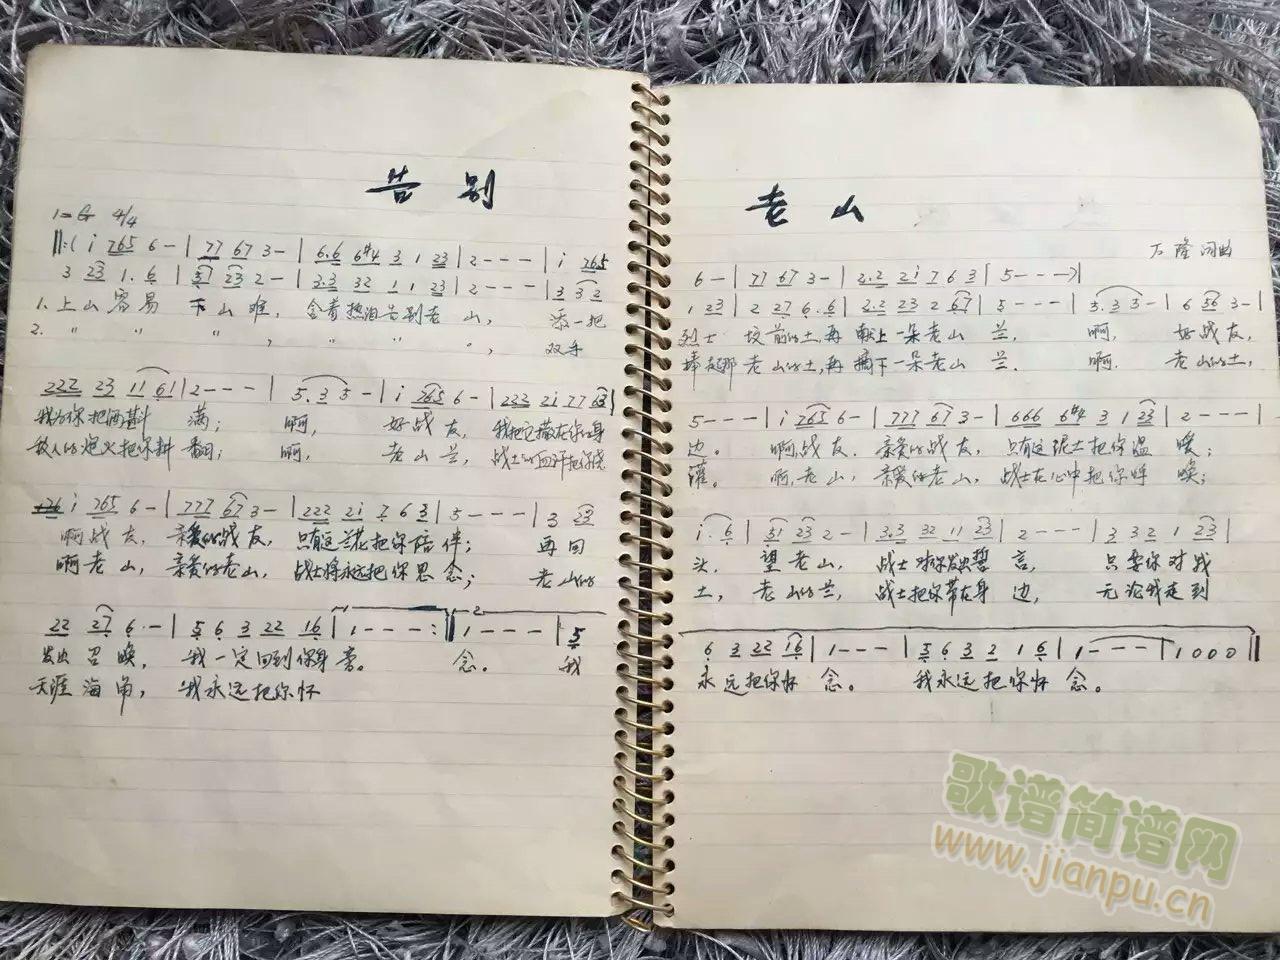 告别 老山
1=G 4/4
万隆 词曲
‖:( i 765 6 - | 77 67 3 - | 6.6 6#4 3 1 23 | 2 - - - | i 765
6 - | 77 67 3 - | 2.2 2i 7 6 3 | 5 - - - ) |
3 23 1. 6 | 37 23 2 - | 3.3 32 1 1 23 | 2 - - - | 3 3 2
1 23 | 2 27 6. 6 | 2.2 23 2 67 | 5 - - - | 3. 3 3 - | 6 56 3 - |
1. 上山容易 下山难, 含着热泪告别老 山, 添一把
烈士 坟前的土,再 献上一朵老山 兰, 啊, 好战友,
2. " " " , " " " , 双手
捧起那老山的土,再 摘下一朵老山 兰. 啊. 老山的土,
222 23 11 61 | 2 - - - | 5. 3 5 - | i 765 6 - | 222 2i 77 63 |
5 - - - | i 765 6 - | 777 67 3 - | 666 6#4 3 1 23 | 2 - - - |
我为你把酒斟 满; 啊, 好战 友, 我把它撒在你的身
边。 啊,战友. 亲爱的战友, 只有这泥土把你温 暖;
敌人的炮火把你耕 翻; 啊, 老山兰, 战士的血汗把你浇
灌。 啊,老山, 亲爱的老山, 战士在心中把你呼 唤;
i 765 6 - | 777 67 3 - | 222 2i 7 6 3 | 5 - - - | 3 23
i. 6 | 31 23 2 - | 3.3 32 11 23 | 2 - - - | 3 3 2 1 23 |
啊战友, 亲爱的战友, 只有这兰花把你陪 伴; 再回
头, 望老山, 战士对你发出誓 言, 只要你对我
啊老山, 亲爱的老山, 战士将永远把你思 念; 老山的
土, 老山的兰, 战士把你带在身 边, 无论我走到
22 27 6. - | 5 6 3 22 16 | 1 - - - :‖ 1 - - - | 5
6 3 22 16 | 1 - - - | 5 6 3 2 1 6 | 1 - - - | 1 0 0 0 ‖
发出召唤, 我一定回到你身旁。 念. 我
永远把你怀 念。 我永远把你怀 念。
天涯海角, 我永远把你怀
歌谱简谱网
www.jianpu.cn